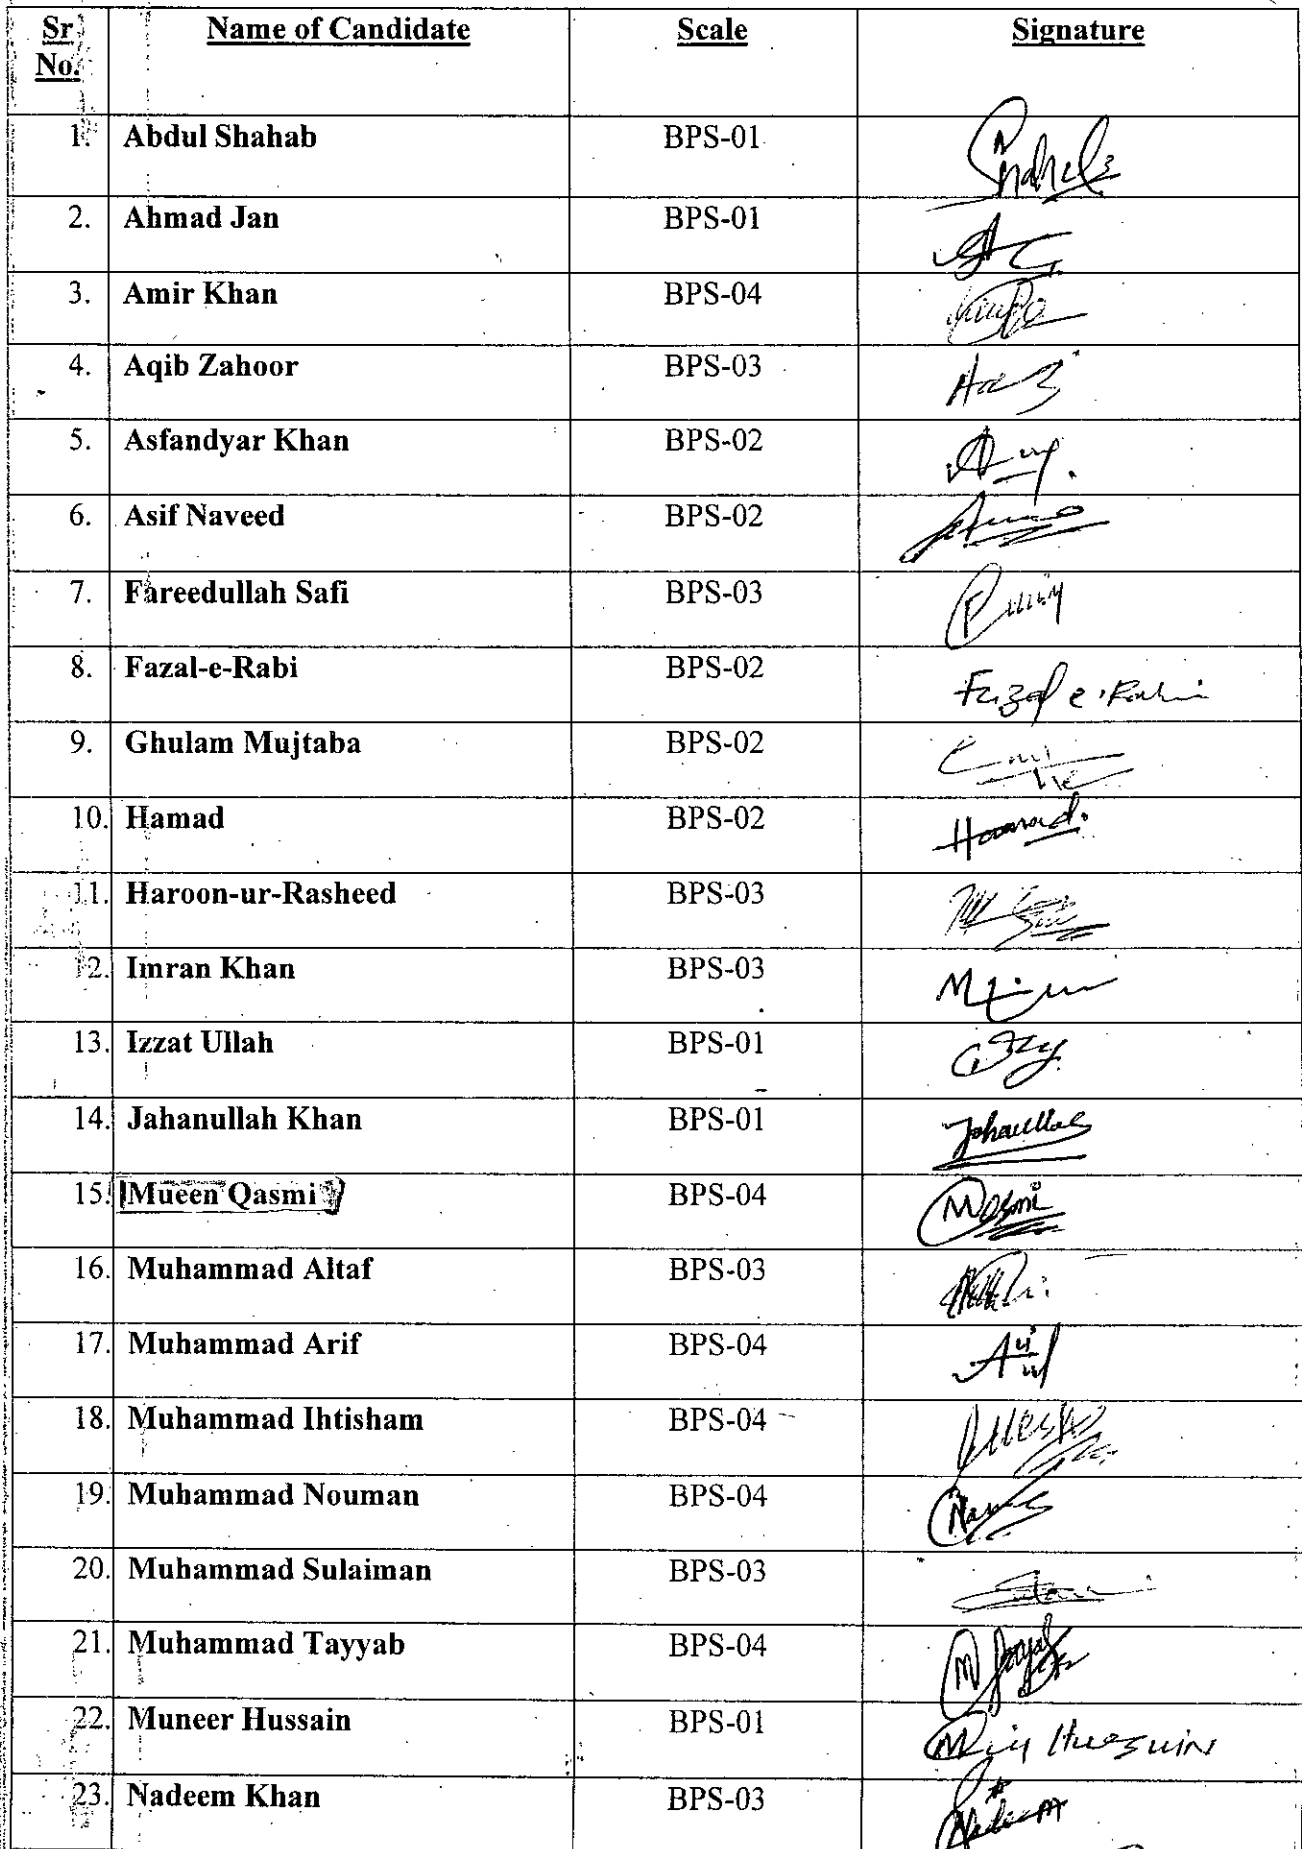 Sr No. Name of Candidate Scale Signature
1. Abdul Shahab BPS-01 Shahab
2. Ahmad Jan BPS-01
3. Amir Khan BPS-04
4. Aqib Zahoor BPS-03
5. Asfandyar Khan BPS-02
6. Asif Naveed BPS-02
7. Fareedullah Safi BPS-03
8. Fazal-e-Rabi BPS-02 Fazal e Rabi
9. Ghulam Mujtaba BPS-02
10. Hamad BPS-02 Hammad.
11. Haroon-ur-Rasheed BPS-03
12. Imran Khan BPS-03
13. Izzat Ullah BPS-01
14. Jahanullah Khan BPS-01
15. Mueen Qasmi BPS-04
16. Muhammad Altaf BPS-03
17. Muhammad Arif BPS-04
18. Muhammad Ihtisham BPS-04
19. Muhammad Nouman BPS-04
20. Muhammad Sulaiman BPS-03
21. Muhammad Tayyab BPS-04
22. Muneer Hussain BPS-01
23. Nadeem Khan BPS-03 Nadeem